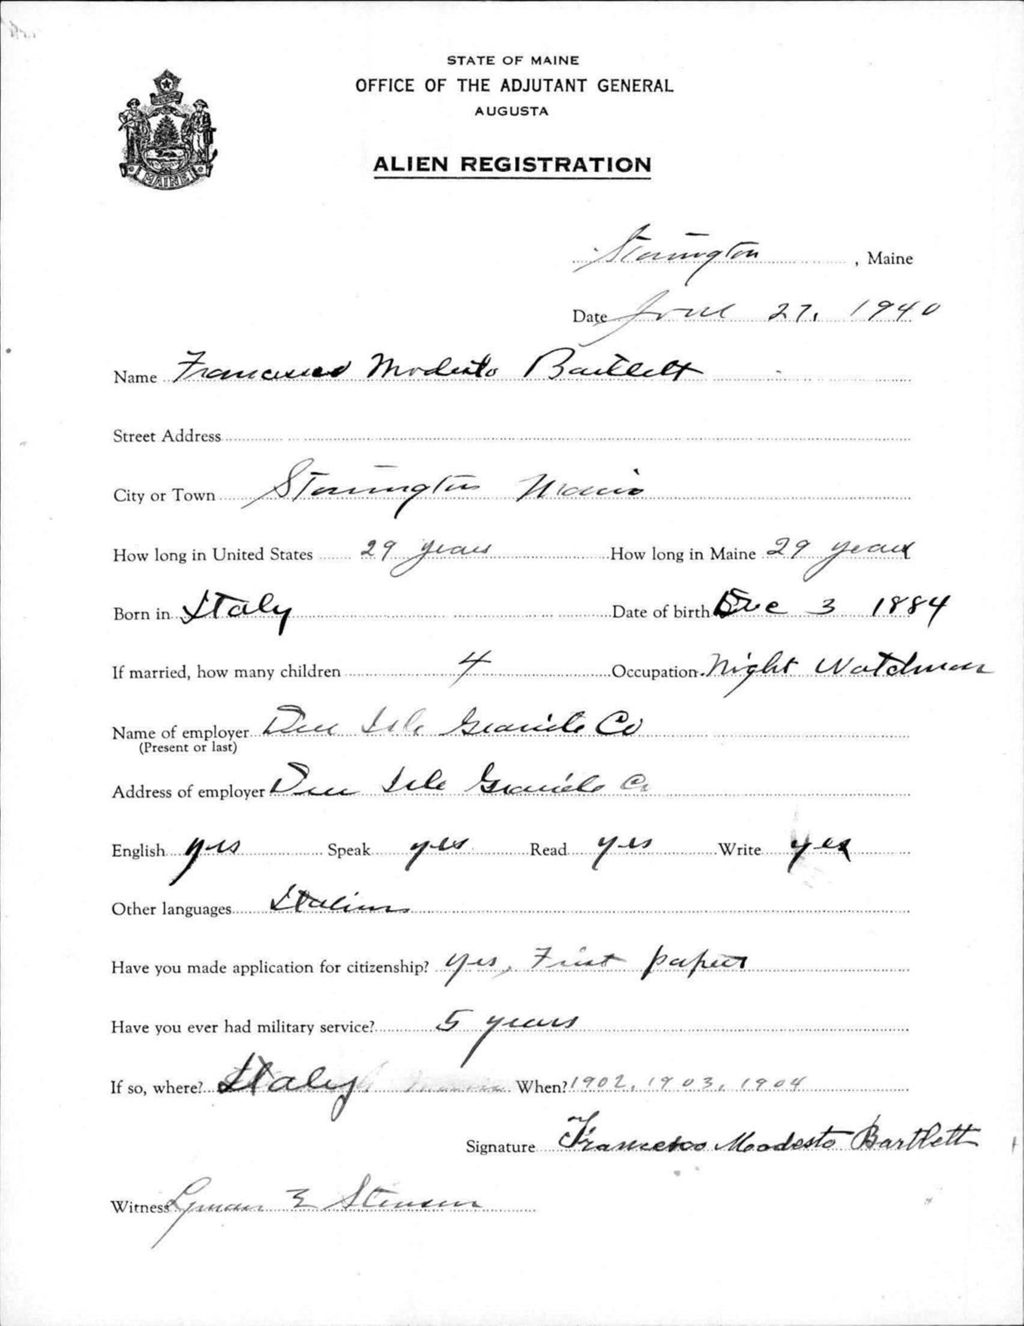 STATE OF MAINE
OFFICE OF THE ADJUTANT GENERAL
AUGUSTA
MAINE
ALIEN REGISTRATION
Stonington, Maine
Date June 27, 1940
Name Francesco Modesto Bartlett
Street Address
City or Town Stonington Maine
How long in United States 29 years How long in Maine 29 years
Born in Italy Date of birth Dec 3 1884
If married, how many children 4 Occupation Night Watchman
Name of employer Deer Isle Granite Co
(Present or last)
Address of employer Deer Isle Granite Co
English yes Speak yes Read yes Write yes
Other languages Italian
Have you made application for citizenship? yes, First papers
Have you ever had military service? 5 years
If so, where? Italy When? 1902, 1903, 1904
Signature Francesco Modesto Bartlett
Witness Lyman E Stinson